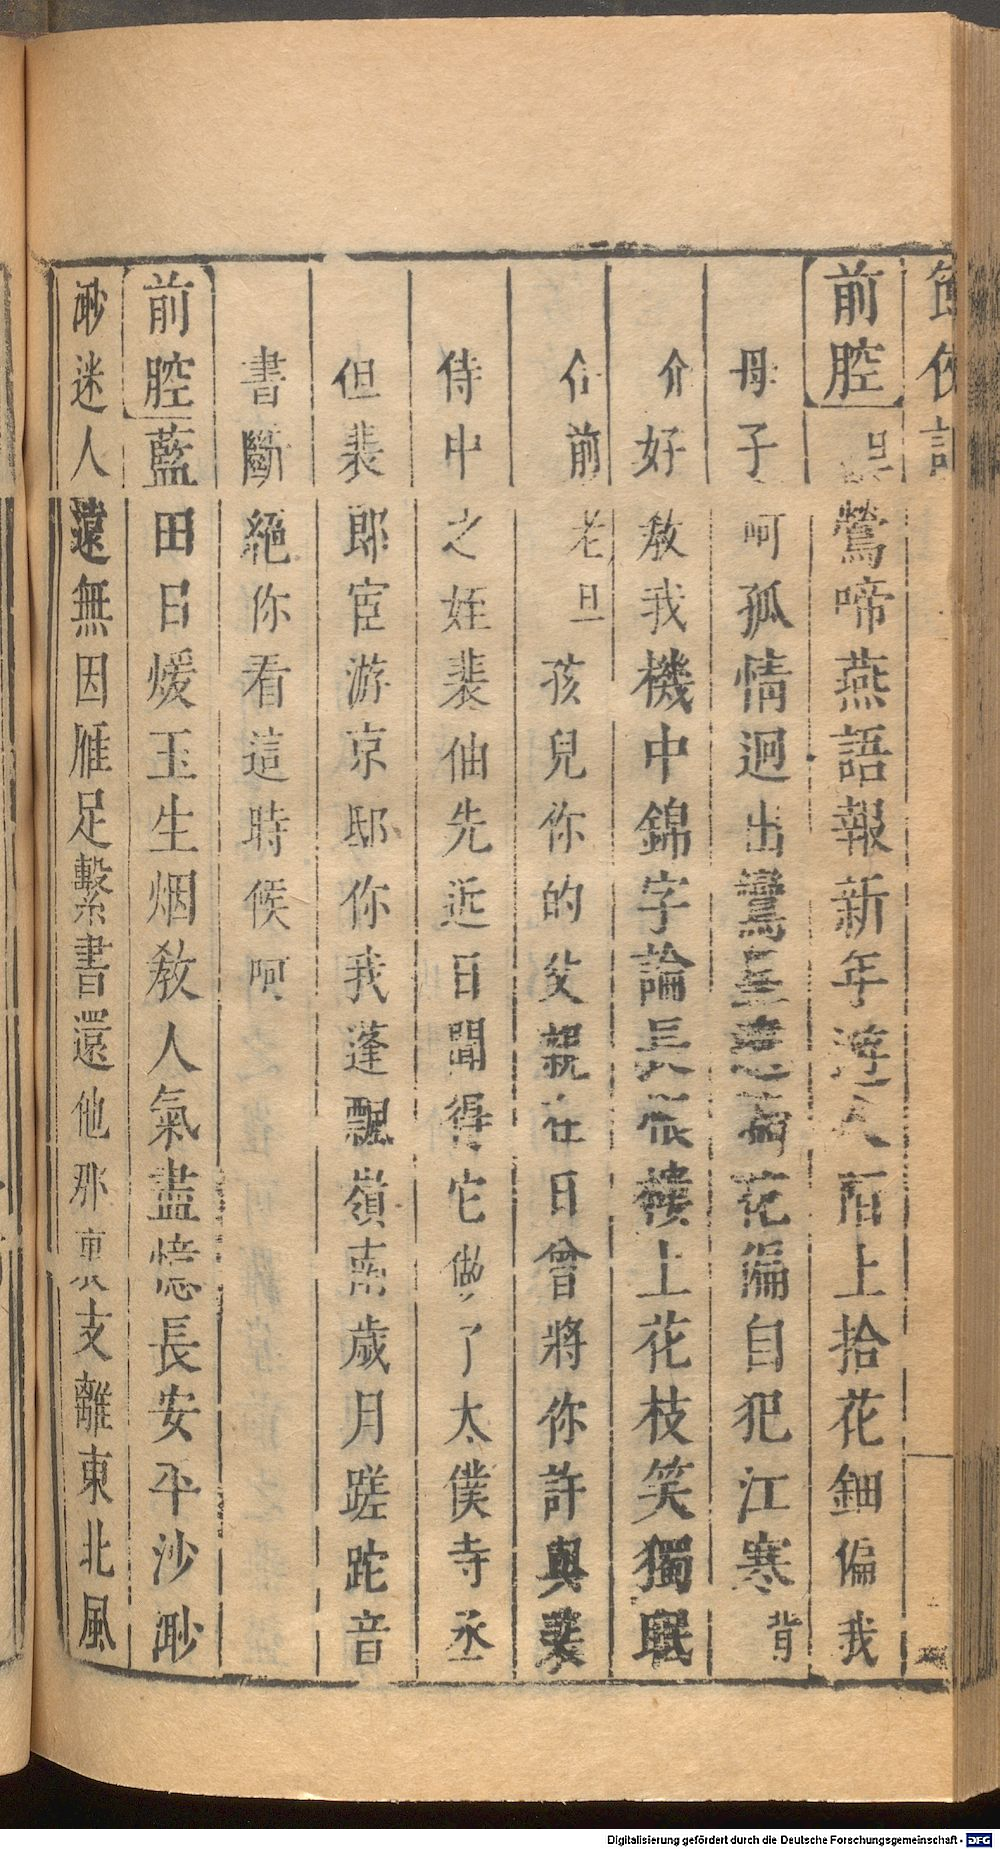 節俠記
前腔旦鶯啼燕語報新年遊人陌上拾花鈿偏我
母子呵孤情迥出鸞花偏自犯江寒背
介好教我機中錦字論長恨樓上花枝笑獨眠
介前老旦孩兒你的父親在日曾將你許與裴
侍中之姪裴伷先近日聞得它做了太僕寺丞
但裴郎宦游京邸你我蓬飄嶺南歲月蹉跎音
書斷絕你看這時候呵
前腔藍田日煖玉生烟教人氣盡憶長安平沙渺
渺迷人遠無因雁足繫書還他那裏支離東北風
Digitalisierung gefördert durch die Deutsche Forschungsgemeinschaft - DFG